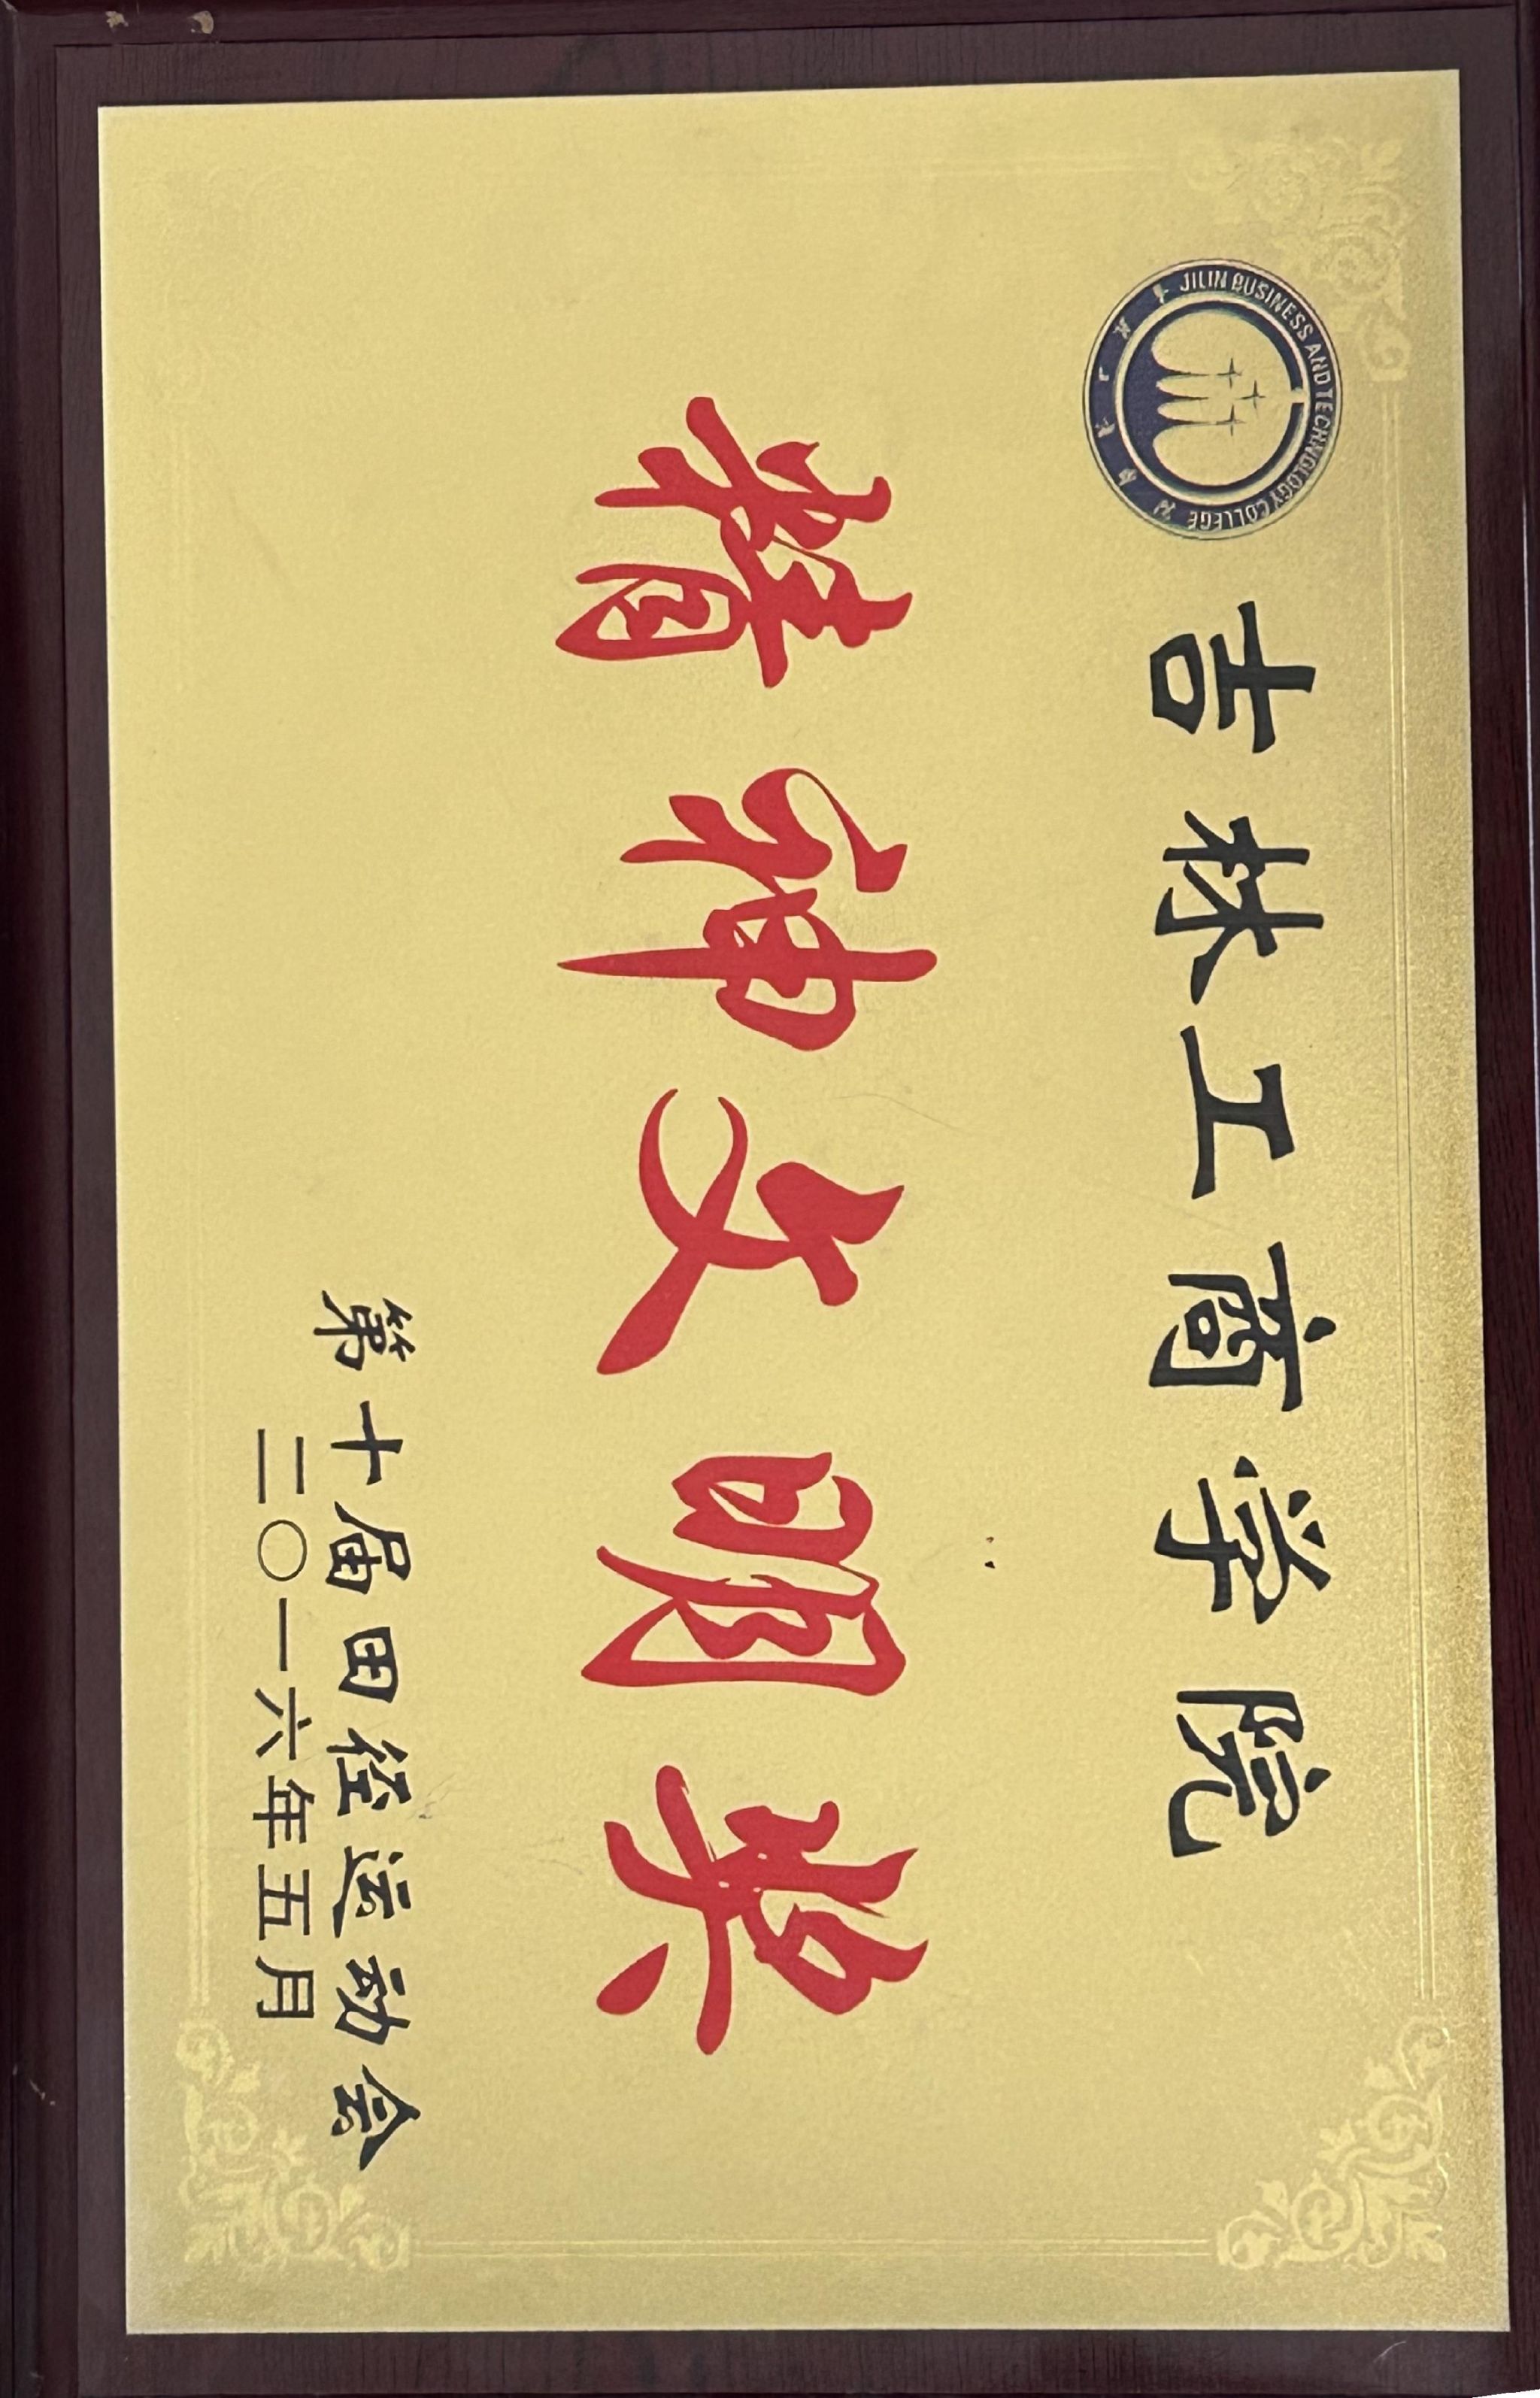 JILIN BUSINESS AND TECHNOLOGY COLLEGE
吉林工商学院
精神文明奖
第十届田径运动会
二〇一六年五月